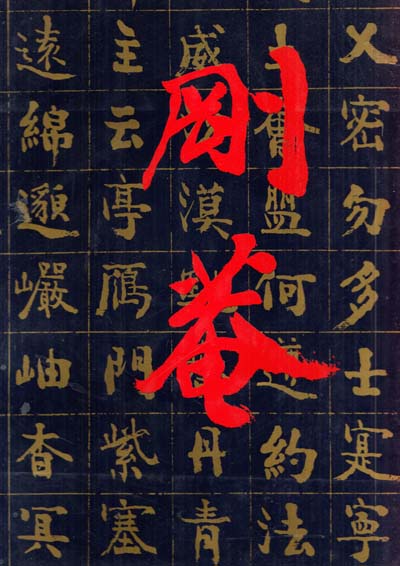 剛菴
乂密勿多士寔寧
土會盟何遵約法
威漠丹青
主云亭鴈門紫塞
遠綿邈巖岫杳冥